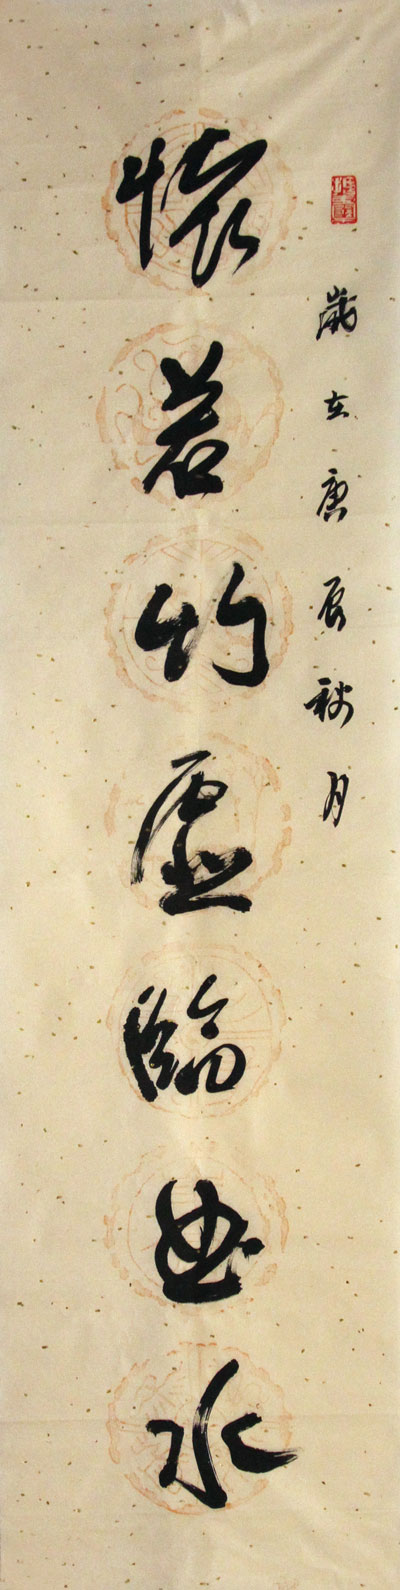 歲在庚辰秋月
懷若竹虛臨曲水